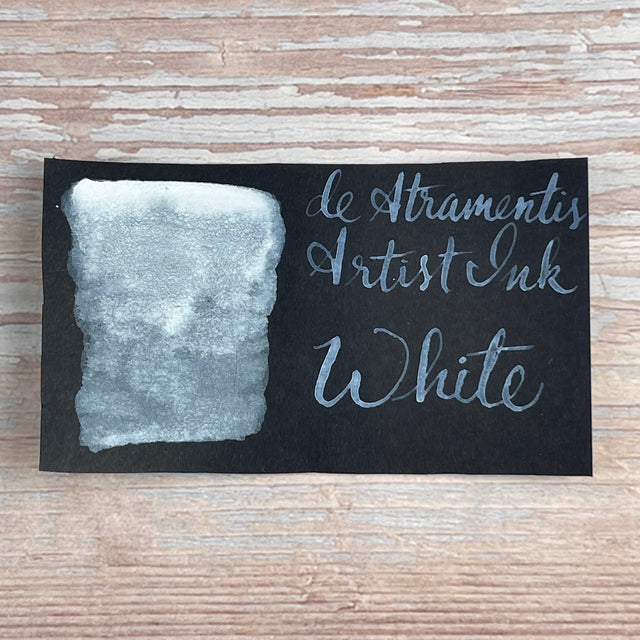 de Atramentis
Artist Ink
White